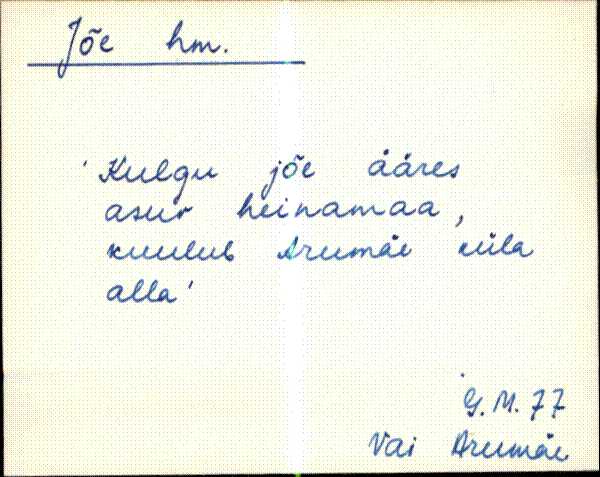 Jõe hm.
'Kulgu jõe ääres
asuv heinamaa,
kuulub Arumäe küla
alla'
G.M.77
Vai Arumäe